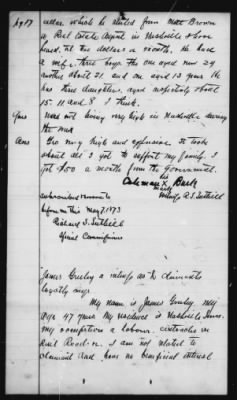 Ag 17
cellar which he rented from Mr Brown
a Real Estate Agent in Nashville
at ten dollars a month. He had
a wife, three boys the one aged now 24
another about 21 and one aged 13 years He
has three daughters, aged respectively about
15. 11 and 8 I think.
Ques was not living very high in Nashville during
the war
Ans Yes very high and expensive It took
about all I got to support my family. I
got $50 a month from the Government.
his
Coleman X Bark
mark
Witness R. S. Tuthill
Subscribed & sworn to
before me this May 7 1873
Richard S. Tuthill
Special Commissioner
James Gurley a witness as to claimants
loyalty says
My name is James Gurley my
age 47 years My residence is Nashville Tenn.
my occupation a laborer.
Rail Road. I am not related to
claimant and have no beneficial interest